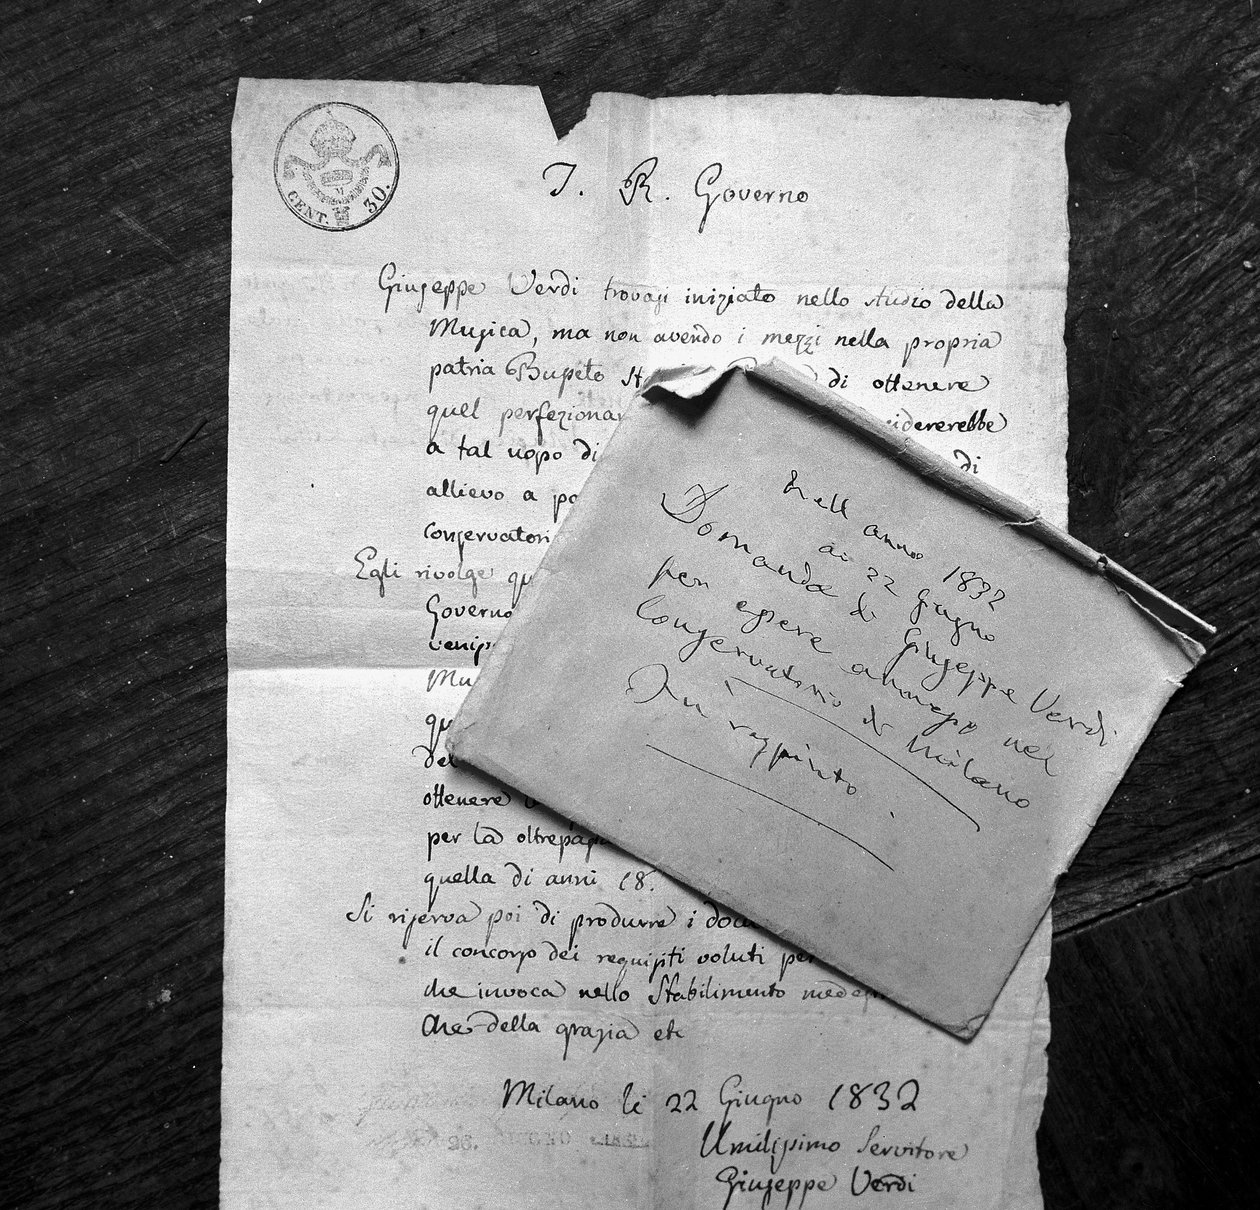 CENT. 30.
I. R. Governo
Giuseppe Verdi trovasi iniziato nello studio della
Musica, ma non avendo i mezzi nella propria
patria Busseto di ottenere
quel
a tal uopo di di
allievo a
Egli rivolge
Governo
ottenere
per la
quella di anni 18.
Si riserva poi di produrre i
il concorso dei requisiti voluti
che invoca nello Stabilimento
Che della grazia etc
Milano li 22 Giugno 1832
Umilissimo Servitore
Giuseppe Verdi
26. GIUGNO
Nell anno 1832
ai 22 Giugno
Domanda di Giuseppe Verdi
per essere ammesso nel
Conservatorio di Milano
Fu respinto